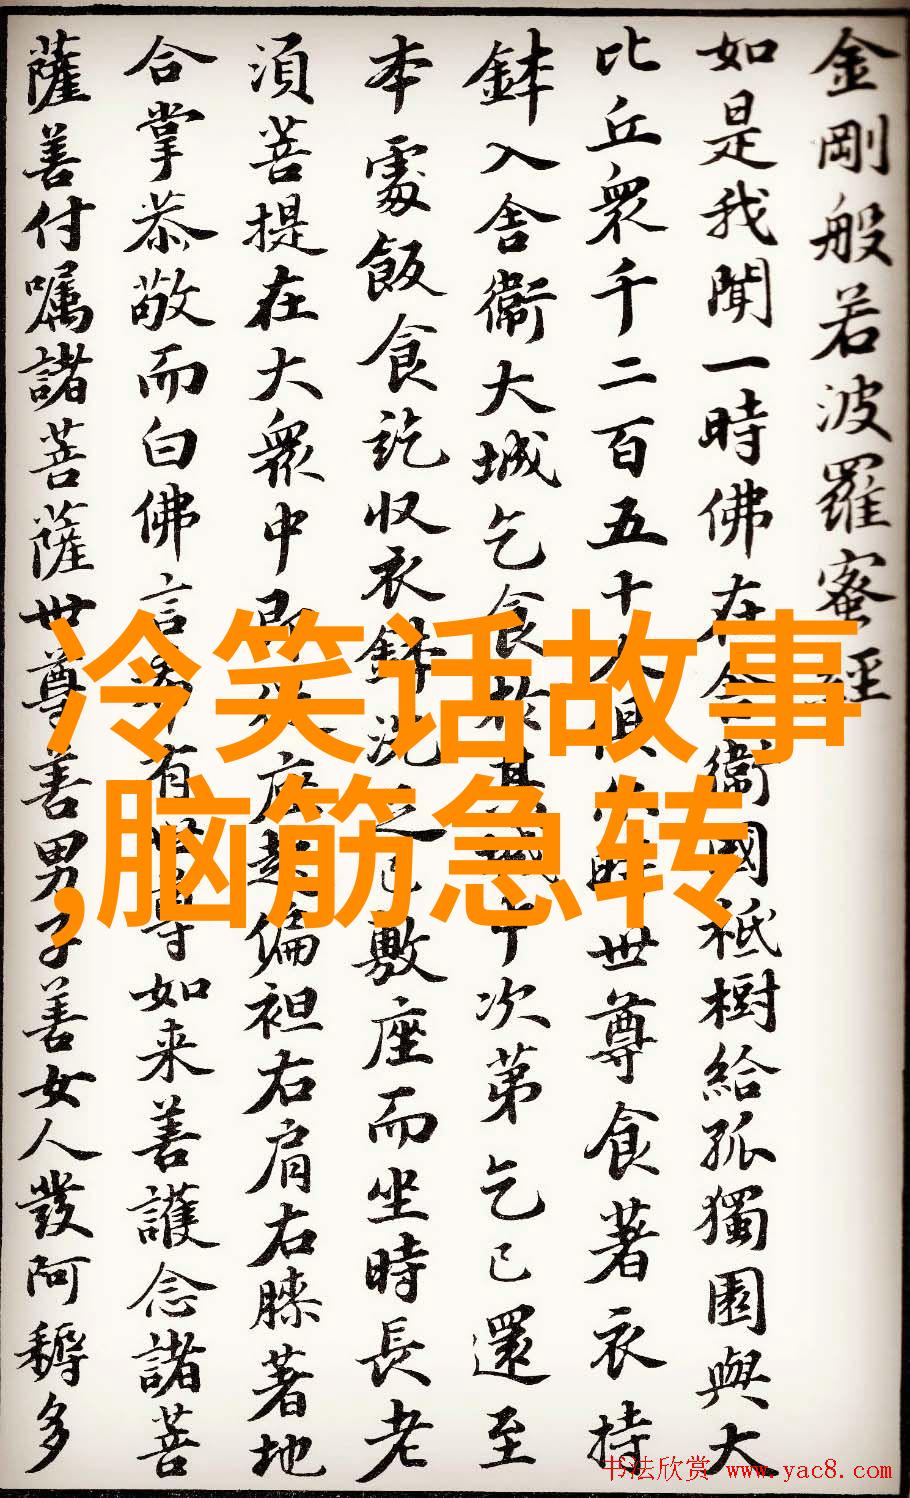 金剛般若波羅蜜經
如是我聞一時佛在舍衞國祇樹給孤獨園與大
比丘衆千二百五十人俱尒時世尊食著衣持
鉢入舍衞大城乞食於其城中次第乞已還至
本處飯食訖収衣鉢洗足已敷座而坐時長老
須菩提在大衆中即從座起偏袒右肩右膝著地
合掌恭敬而白佛言希有世尊如来善護念諸菩
薩善付嘱諸菩薩世尊善男子善女人發阿耨多
冷笑话故事
,脑筋急转
书法欣赏 www.yac8.com